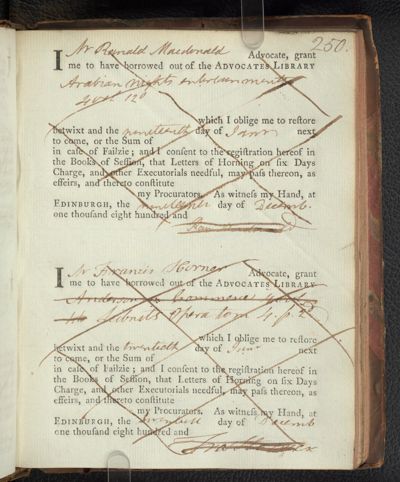 250.
I Mr Ranald Macdonald Advocate, grant
me to have borrowed out of the ADVOCATES LIBRARY
Arabian nights entertainments
4 vol. 12o
which I oblige me to reſtore
betwixt and the nineteenth day of Janry next
to come, or the Sum of
in caſe of Failzie; and I conſent to the regiſtration hereof in
the Books of Seſſion, that Letters of Horning on ſix Days
Charge, and other Executorials needful, may paſs thereon, as
effeirs, and thereto conſtitute
my Procurators. As witneſs my Hand, at
EDINBURGH, the nineteenth day of Decemb.
one thouſand eight hundred and
I Mr Francis Horner Advocate, grant
me to have borrowed out of the ADVOCATES LIBRARY
Anderson Commerce
Leibnitz Opera tom 4. p. 2d
which I oblige me to reſtore
betwixt and the twentieth day of Janry next
to come, or the Sum of
in caſe of Failzie; and I conſent to the regiſtration hereof in
the Books of Seſſion, that Letters of Horning on ſix Days
Charge, and other Executorials needful, may paſs thereon, as
effeirs, and thereto conſtitute
my Procurators. As witneſs my Hand, at
EDINBURGH, the twentieth day of Decemb
one thouſand eight hundred and